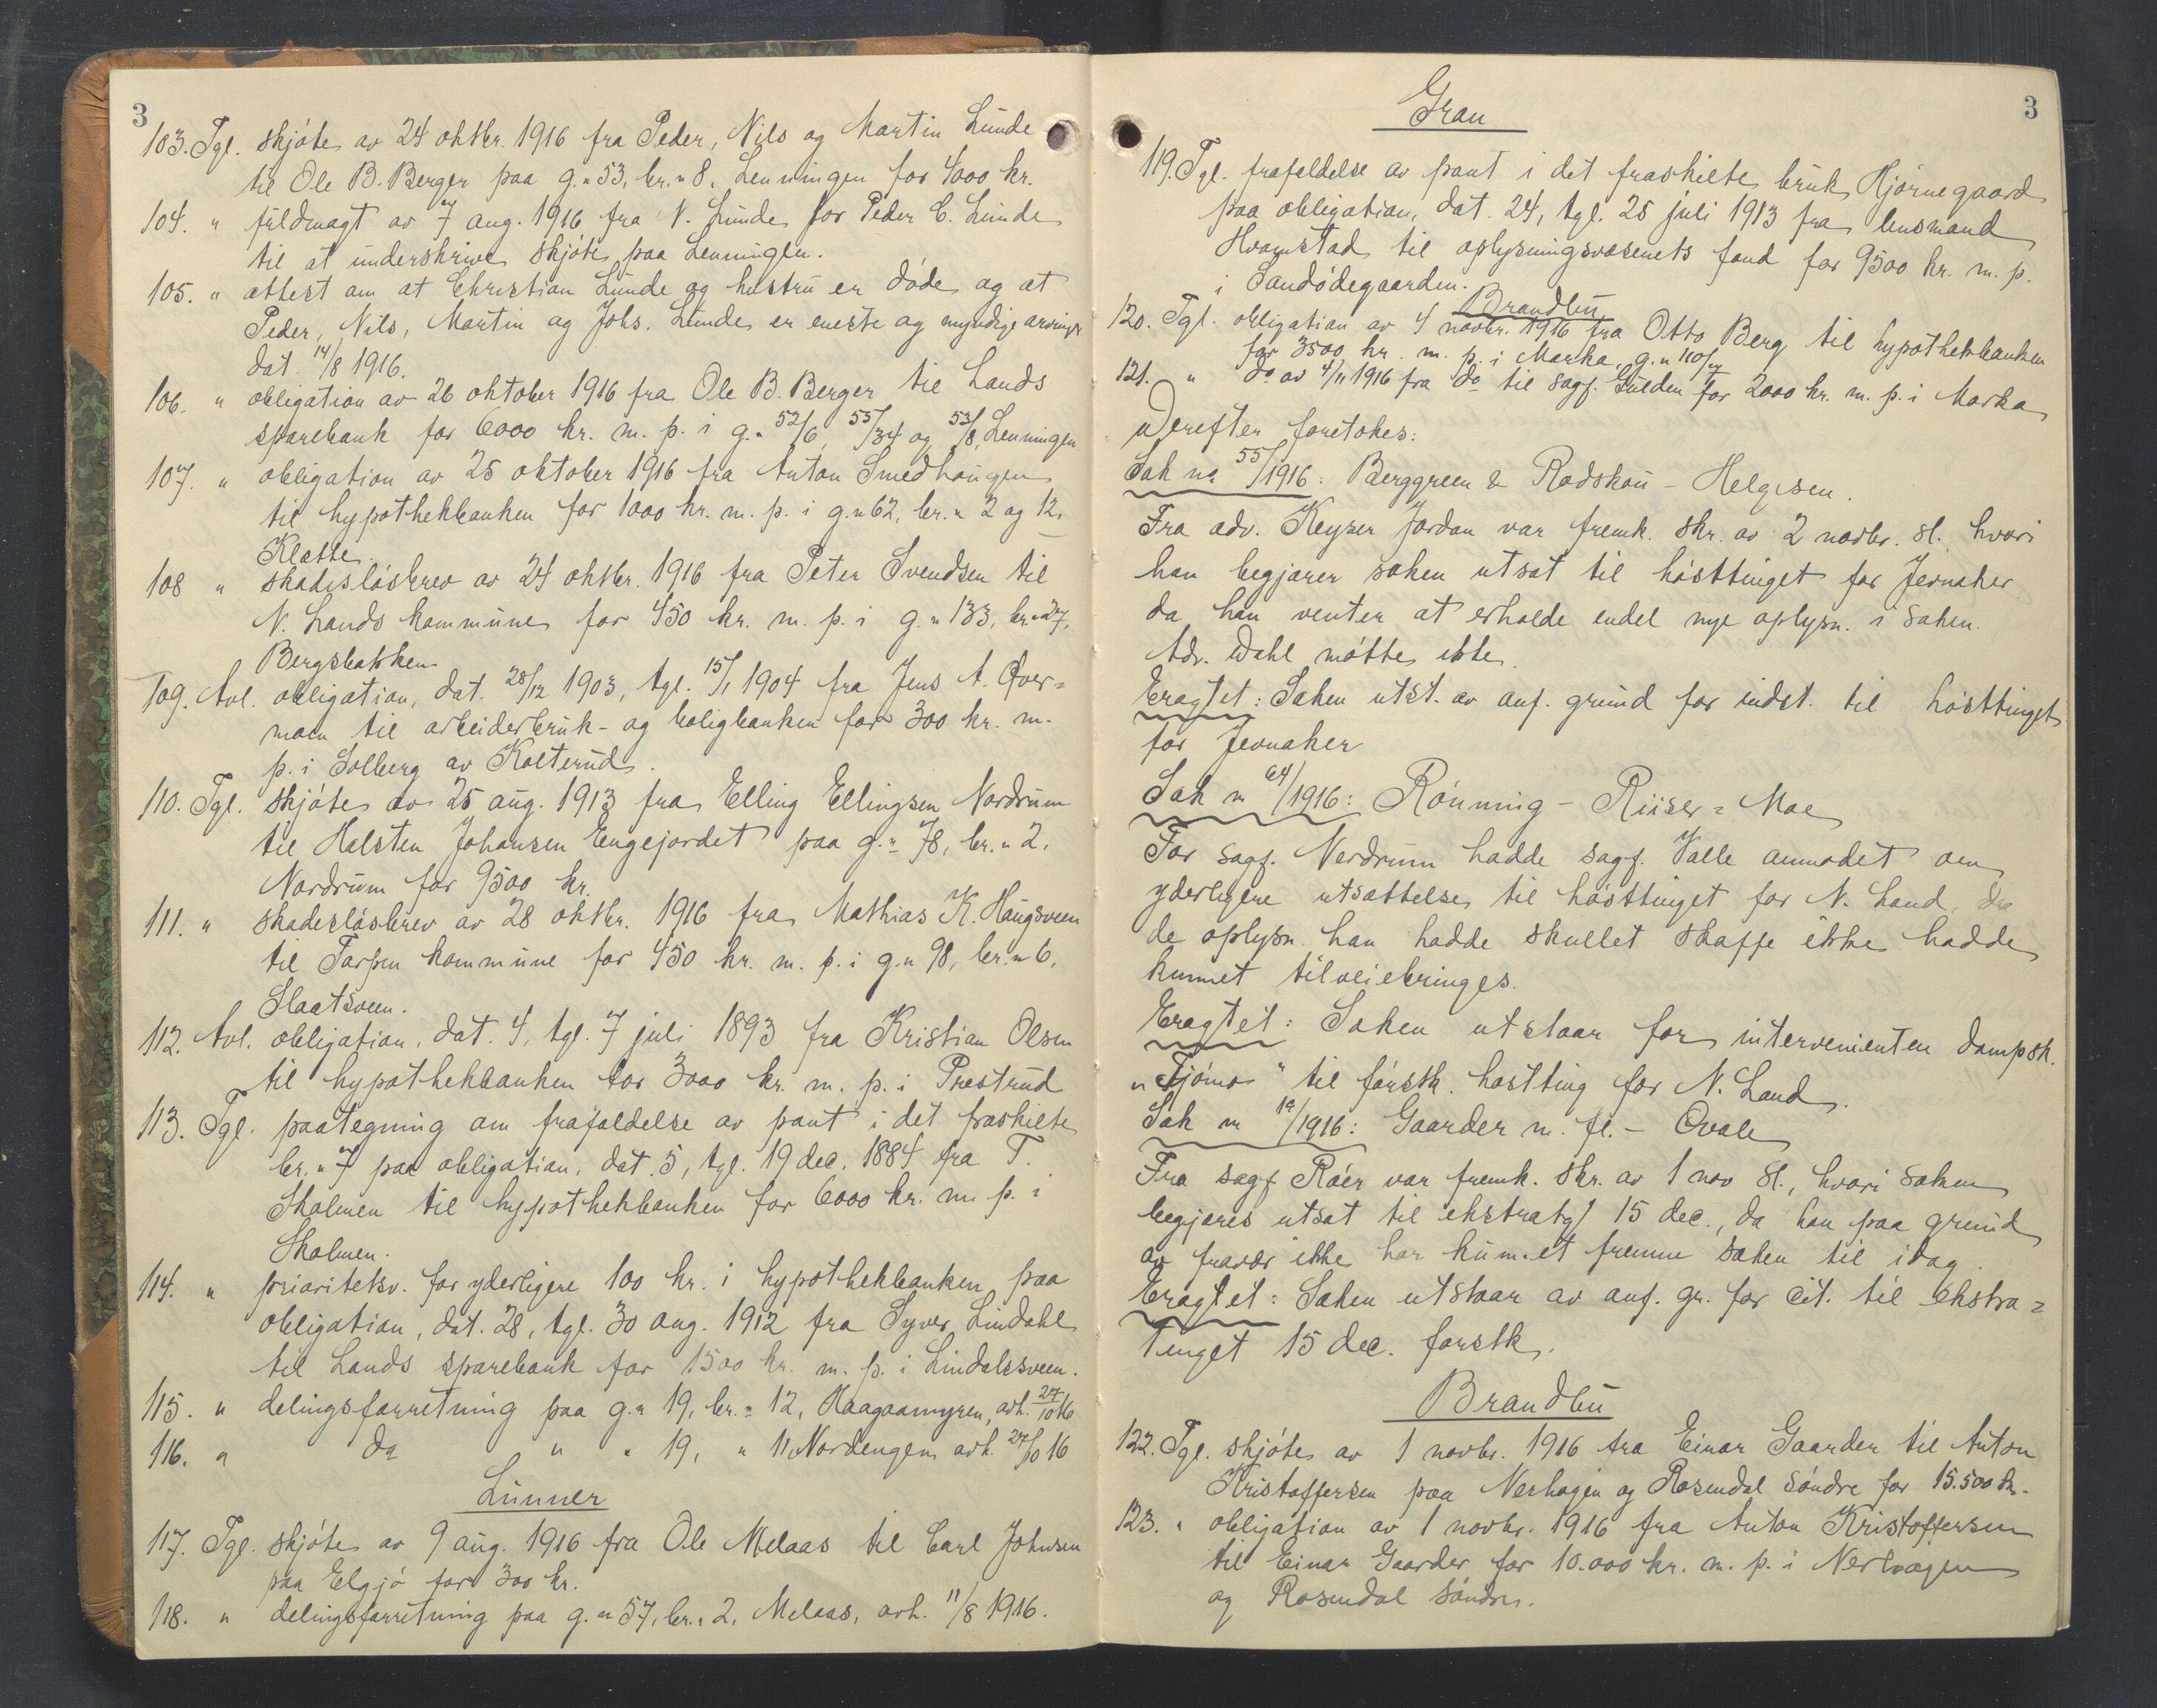 3
103. Tgl. skjöte av 24 oktbr. 1916 fra Peder, Nils og Martin Lunde
til Ole B. Berger paa g.n 53, br.n 8, Lenningen for 4000 kr.
104. " fuldmagt av 7 aug. 1916 fra N. Lunde for Peder C. Lunde
til at underskrive skjöte paa Lenningen.
105. " attest om at Christian Lunde og hustru er döde og at
Peder, Nils, Martin og Johs. Lunde er eneste og myndige arvinger
dat. 14/8 1916.
106. " obligation av 26 oktober 1916 fra Ole B. Berger til Lands
sparebank for 6000 kr. m. p. i g.n 52/6, 55/34 og 53/8, Lenningen
107. " obligation av 25 oktober 1916 fra Anton Smedhaugen
til hypothekbanken for 1000 kr. m. p. i g.n 62, br.n 2 og 12,
Klette.
108 " skadeslösbrev av 24 oktbr. 1916 fra Peter Svendsen til
N. Lands kommune for 450 kr. m. p. i g.n 133, br.n 27,
Bergsbakken
109. Avl. obligation, dat. 28/12 1903, tgl. 15/1 1904 fra Jens A. Över=
moen til arbeiderbruk- og boligbanken for 300 kr. m.
p. i Solberg av Kolterud.
110. Tgl. skjöte av 25 aug. 1913 fra Elling Ellingsen Nordrum
til Halsten Johansen Engejordet paa g.n 78, br.n 2,
Nordrum for 9500 kr.
111. " skadeslösbrev av 28 oktbr. 1916 fra Mathias K. Haugsveen
til Torpen kommune for 450 kr. m. p. i g.n 98, br.n 6,
Slaatsveen.
112. Avl. obligation, dat. 4, tgl. 7 juli 1893 fra Kristian Olsen
til hypothekbanken for 3000 kr. m. p. i Prestrud
113. Tgl. paategning om frafaldelse av pant i det fraskilte
br.n 7 paa obligation, dat. 5, tgl. 19 dec. 1884 fra T.
Skolmen til hypothekbanken for 6000 kr. m. p. i
Skolmen.
114. " prioritetsv. for yderligere 100 kr. i hypothekbanken paa
obligation, dat. 28, tgl. 30 aug. 1912 fra Syver Lindahl
til Lands sparebank for 1500 kr. m. p. i Lindalssveen.
115. " delingsforretning paa g.n 19, br.n 12, Haagaamyren, avh. 27/10 16
116. " do " " 19, " 11, Nordengen avh. 27/10 16
Lunner
117. Tgl. skjöte av 9 aug. 1916 fra Ole Melaas til Carl Johnsen
paa Elgjö for 300 kr.
118. " delingsforretning paa g.n 57, br.n 2, Melaas, avh. 11/8 1916.
3
Gran
119. Tgl. frafaldelse av pant i det fraskilte bruk Hjörnegaard
paa obligation, dat. 24, tgl. 25 juli 1913 fra lensmand
Hvamstad til oplysningsvæsenets fond for 9500 kr. m. p.
i Sandödegaarden.
Brandbu
120. Tgl. obligation av 4 novbr. 1916 fra Otto Berg til hypothekbanken
for 3500 kr. m. p. i Marka, g.n 110/7
121. " do av 4/11 1916 fra do til sagf. Gulden for 2000 kr. m. p. i Marka
Derefter foretokes:
Sak no 55/1916: Berggreen & Rodskou - Helgesen.
Fra adv. Keyser Jordan var fremk. skr. av 2 novbr. sl. hvori
han begjærer saken utsat til hösttinget for Jevnaker
da han venter at erholde endel nye oplysn. i saken.
Adv. Dahl mötte ikke.
Eragtet: Saken utst. av anf. grund for indst. til hösttinget
for Jevnaker
Sak n 64/1916: Rönning - Riiser = Moe
For sagf. Nerdrum hadde sagf. Valle anmodet om
yderligere utsættelse til hösttinget for N. Land, da
de oplysn. han hadde skullet skaffe ikke hadde
kunnet tilveiebringes.
Eragtet: Saken utstaar for intervenienten dampsk.
"Tjömo" til förstk. hostting for N. Land.
Sak n 19/1916: Gaarder m. fl. - Qvale
Fra sagf Röer var fremk. skr. av 1 nov sl., hvori saken
begjæres utsat til ekstratgt 15 dec., da han paa grund
av fravær ikke har kunnet fremme saken til idag.
Eragtet: Saken utstaar av anf. gr. for cit. til ekstra=
tinget 15 dec. förstk.
Brandbu
122. Tgl. skjöte av 1 novbr. 1916 fra Einar Gaarder til Anton
Kristoffersen paa Nerhagen og Rosendal söndre for 15.500 kr.
123. " obligation av 1 novbr. 1916 fra Anton Kristoffersen
til Einar Gaarder for 10.000 kr. m. p. i Nerhagen
og Rosendal söndre.